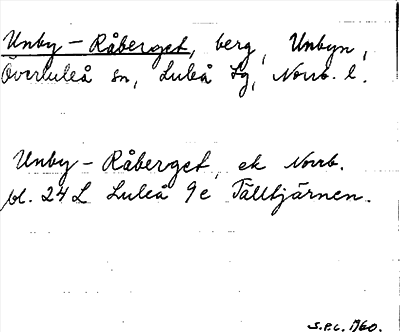 Unby-Råberget, berg, Unbyn,
Överluleå sn, Luleå tg, Norrb. l.
Unby-Råberget, ek Norrb.
bl. 24 L Luleå 9 e Tälltjärnen.
S.P.L. 1960.